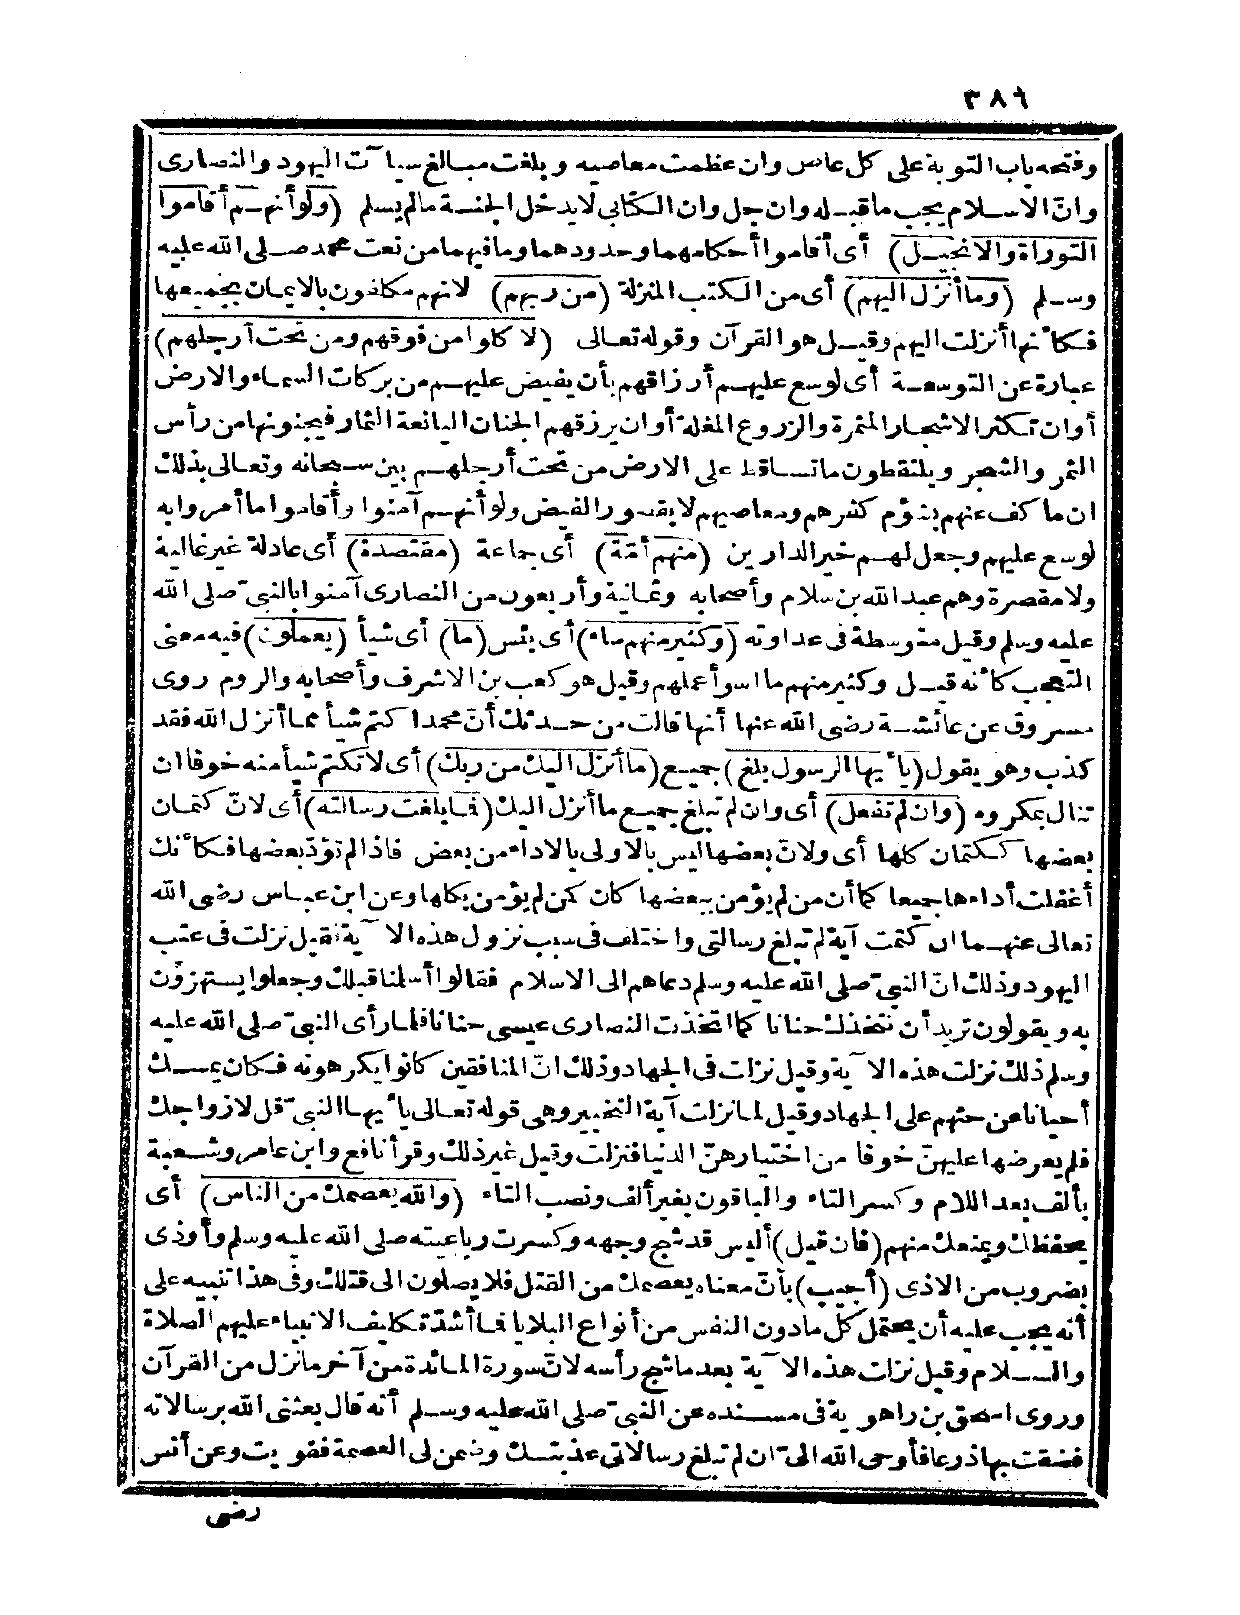 ٣٨٦
وفتحه باب التوبة على كل عاص وان عظمت معاصيه وبلغت مبالغ سيآت اليهود والنصارى
وانّ الاسلام يجب ما قبله وان جل وان الكتابى لا يدخل الجنة مالم يسلم (ولو أنهم أقاموا
التوراة والانجيل) أى أقاموا أحكامهما وحدودهما وما فيهما من نعت محمد صلى الله عليه
وسلم (وما أنزل اليهم) أى من الكتب المنزلة (من ربهم) لانهم مكلفون بالايمان بجميعها
فكأنها أنزلت اليهم وقيل هو القرآن وقوله تعالى (لاكلوا من فوقهم ومن تحت أرجلهم)
عبارة عن التوسعة أى لوسع عليهم أرزاقهم بأن يفيض عليهم من بركات السماء والارض
أو ان تكثر الاشجار المثمرة والزروع المغلة أو ان يرزقهم الجنان اليانعة الثمار فيجنونها من رأس
الثمر والشجر ويلتقطون ما تساقط على الارض من تحت أرجلهم بين سبحانه وتعالى بذلك
ان ما كف عنهم بشؤم كفرهم ومعاصيهم لا بقصور الفيض ولو أنهم آمنوا وأقاموا ما أمروا به
لوسع عليهم وجعل لهم خير الدارين (منهم أمّة) أى جماعة (مقتصدة) أى عادلة غير غالية
ولا مقصرة وهم عبد الله بن سلام وأصحابه وثمانية وأربعون من النصارى آمنوا بالنبىّ صلى الله
عليه وسلم وقيل متوسطة فى عداوته (وكثير منهم ساء) أى بئس (ما) أى شيأ (يعملون) فيه معنى
التعجب كأنه قيل وكثير منهم ما اسوأ عملهم وقيل هو كعب بن الاشرف وأصحابه والروم روى
مسروق عن عائشة رضى الله عنها أنها قالت من حدثك أنّ محمدا كتم شيأ مما أنزل الله فقد
كذب وهو يقول (يا أيها الرسول بلغ) جميع (ما أنزل اليك من ربك) أى لا تكتم شيأ منه خوفا ان
تنال بمكروه (وان لم تفعل) أى وان لم تبلغ جميع ما أنزل اليك (فما بلغت رسالته) أى لانّ كتمان
بعضها ككتمان كلها أى ولانّ بعضها ليس بالاولى بالاداء من بعض فاذا لم تؤدّ بعضها فكأنك
أغفلت أداءها جميعا كما أن من لم يؤمن ببعضها كان كمن لم يؤمن بكلها وعن ابن عباس رضى الله
تعالى عنهما ان كتمت آية لم تبلغ رسالتى واختلف فى سبب نزول هذه الآية فقيل نزلت فى عتب
اليهود وذلك انّ النبىّ صلى الله عليه وسلم دعاهم الى الاسلام فقالوا أسلمنا قبلك وجعلوا يستهزؤن
به ويقولون تريد أن نتخذك حنانا كما اتخذت النصارى عيسى حنانا فلما رأى النبىّ صلى الله عليه
وسلم ذلك نزلت هذه الآية وقيل نزلت فى الجهاد وذلك انّ المنافقين كانوا يكرهونه فكان يمسك
أحيانا عن حثهم على الجهاد وقيل لما نزلت آية التخيير وهى قوله تعالى يا أيها النبىّ قل لازواجك
فلم يعرضها عليهنّ خوفا من اختيارهنّ الدنيا فنزلت وقيل غير ذلك وقرأ نافع وابن عامر وشعبة
بألف بعد اللام وكسر التاء والباقون بغير ألف ونصب التاء (والله يعصمك من الناس) أى
يحفظك ويمنعك منهم (فان قيل) أليس قد شج وجهه وكسرت رباعيته صلى الله عليه وسلم وأوذى
بضروب من الاذى (أجيب) بأنّ معناه يعصمك من القتل فلا يصلون الى قتلك وفى هذا تنبيه على
أنه يجب عليه أن يحتمل كل ما دون النفس من أنواع البلايا فما أشدّ تكاليف الانبياء عليهم الصلاة
والسلام وقيل نزلت هذه الآية بعد ما شج رأسه لانّ سورة المائدة من آخر ما نزل من القرآن
وروى اسحق بن راهويه فى مسنده عن النبىّ صلى الله عليه وسلم أنه قال بعثنى الله برسالاته
فضقت بها ذرعا فأوحى الله الىّ ان لم تبلغ رسالاتى عذبتك وضمن لى العصمة فقويت وعن أنس
رضى